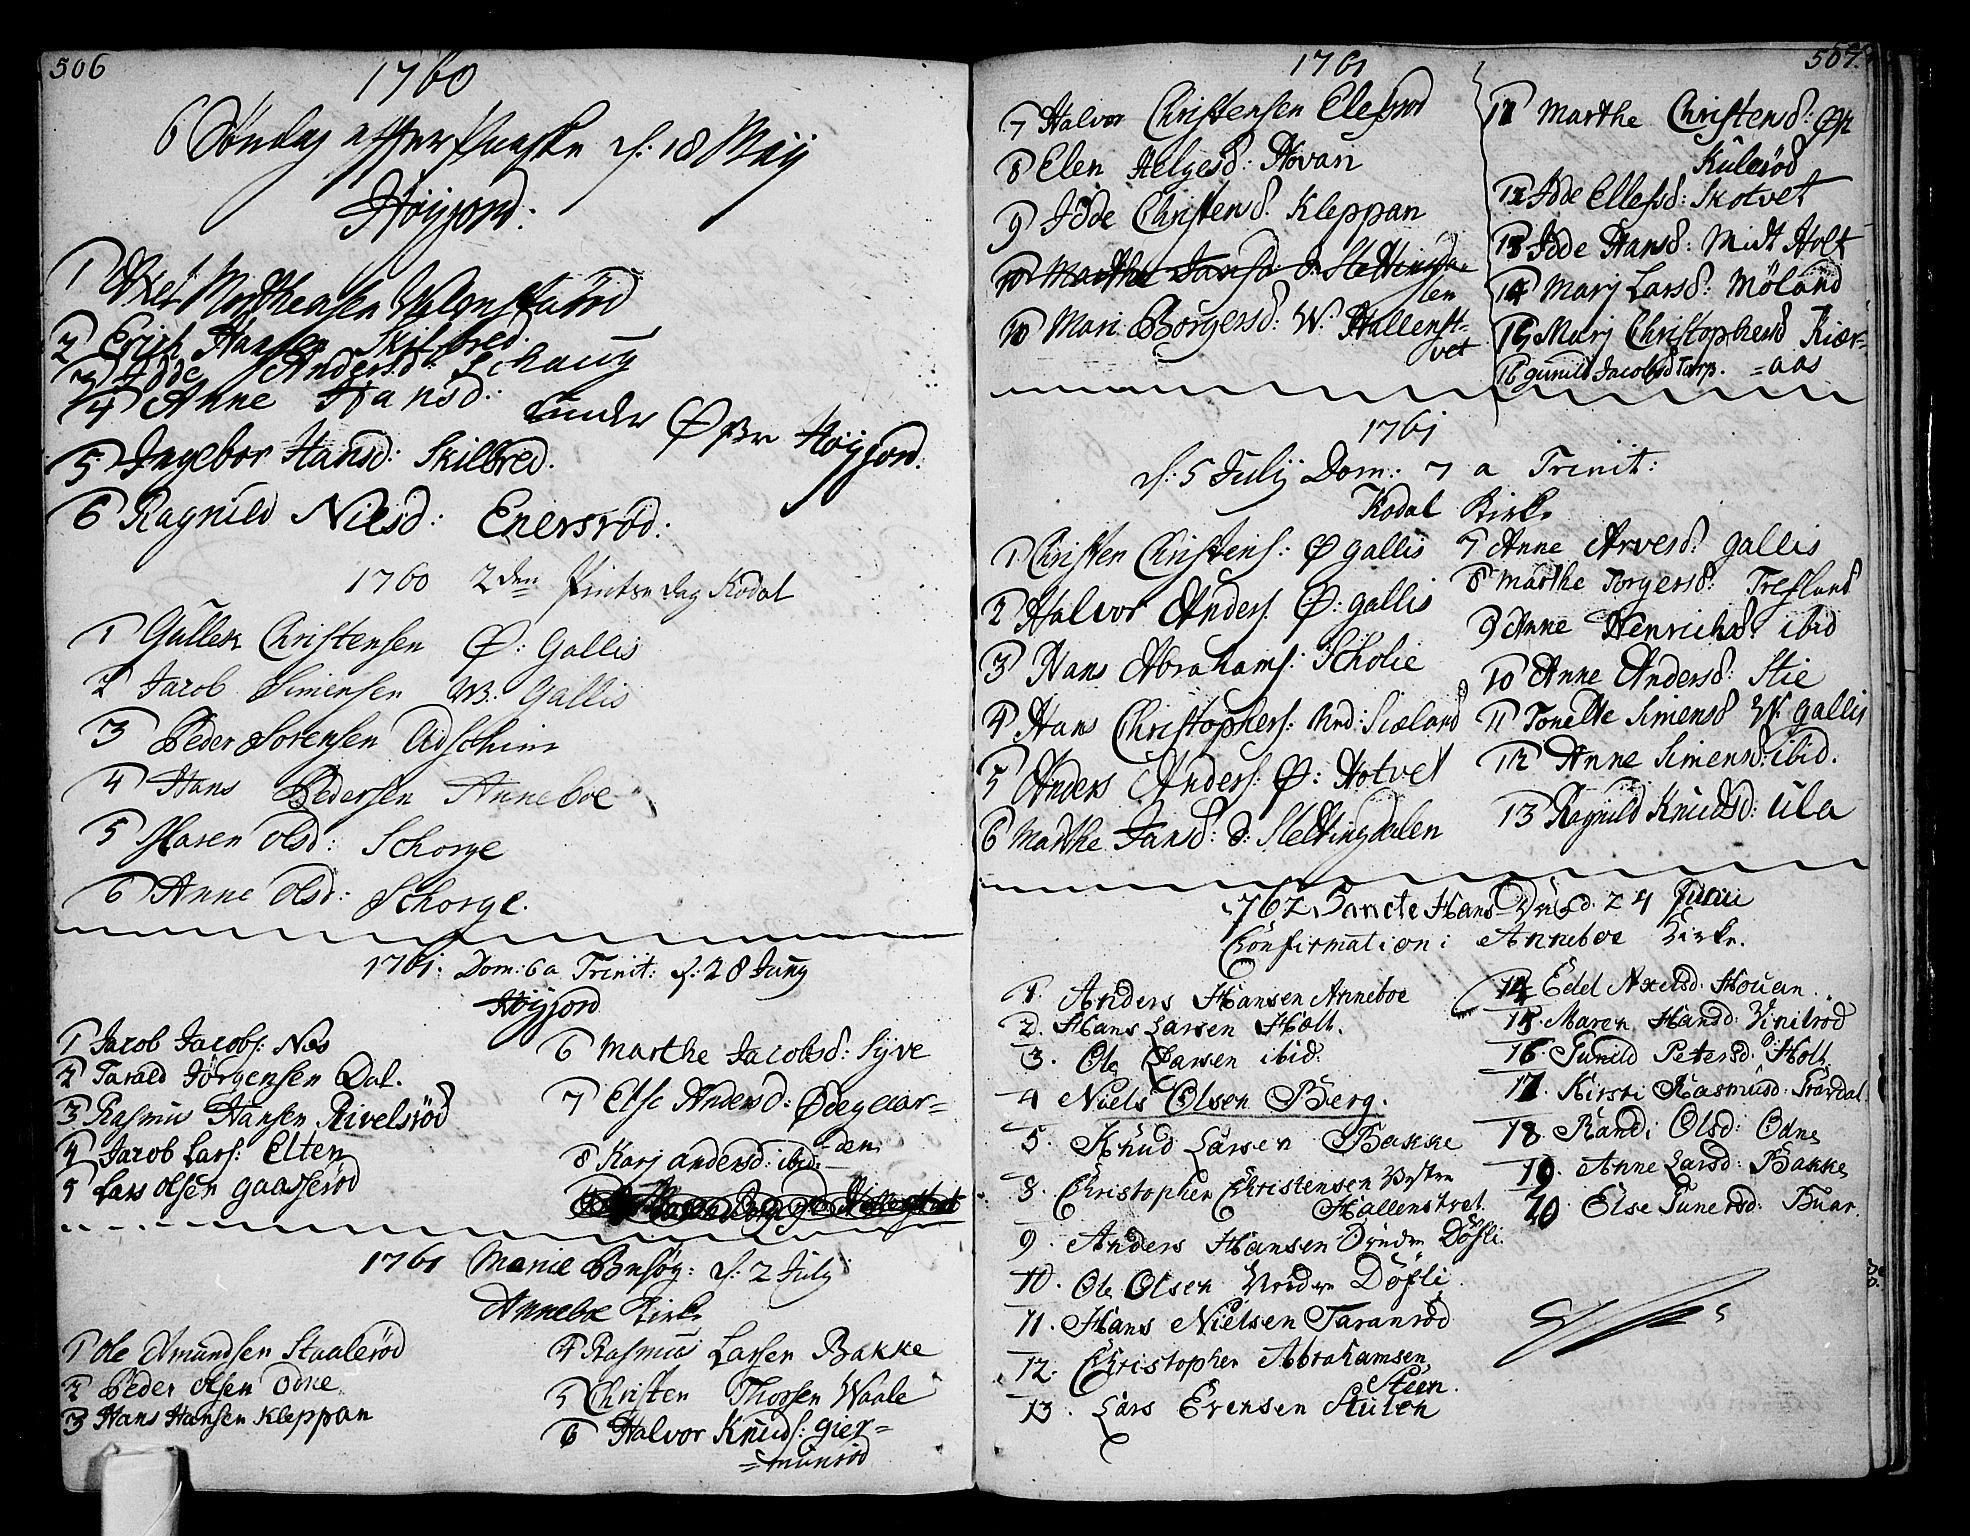 506
1760
6 Søndag efter Paaske d: 18 Maij
Høijjord:
1 Axel Matthensen
2 Erich Hansen Skilbred.
3 Adde Andersd: Schaug
4 Anne Hansd: under Øfr Høijjord.
5 Ingebor Hansd: Skilbred.
6 Ragnild Nilsd: Enersrød:
1760 2den Pintse Dag Kodal
1 Gullek Christensen Ø: Gallis
2 Jacob Simensen W: Gallis
3 Peder Sørensen
4 Hans Pedersen Anneboe
5 Maren Olsd: Schorge
6 Anne Olsd: Schorge.
1761. Dom: 6 a Trinit: d: 28 Junij
Høijjord
1 Jacob Jacobs: Nes
2 Tarald Jørgensen Dal.
3 Rasmus Hansen Rivelsrød
4 Jacob Lars: Elten
5 Lars Olsen gaaserød
6 Marthe Jacobsd: Syve
7 Else Andersd: Ødegaar-
den
8 Karj andersd: ibid:
1761 Mariæ Besøg: d: 2 Julij
Anneboe Kirke
1 Ole Amundsen Staalerød
2 Peder Olsen Odne
3 Hans Hansen Kleppan
4 Rasmus Larsen Bakke
5 Christen Thorsen Waale
6 Halvor Knuds: gier=
=munrød
507.
1761
7 Halvor Christensen
8 Elen Helgesd: Hovan
9 Idde Christensd. Kleppan
10 Marthe Jansd D. Slettingda-
len
10 Mari Børgersd: W. Hallenst-
vet
11 Marthe Christensd: Øfr
Kulerød
12 Idde Ellefsd: Skotvet
13 Idde Hansd: Midt Holt
14 Marj Larsd: Møland
15 Marj Christophersd Kiær-
=aas
16 gunild Jacobsd Torp.
1761
d: 5 Julij Dom: 7 a Trinit:
Kodal Kirke
1 Christen Christens: Ø gallis
2 Halvor Anders. Ø: gallis
3 Hans Abrahams: Skolie
4 Hans Christophers: Nrd: Siæland
5 Anders Anders: Ø: Hotvet
6 Marthe Jansd: D: Slettingdalen
7 Anne Arvesd: gallis
8 Marthe Torgersd: Trefland
9 Anne Henrichsd: ibid
10 Anne Andersd: Stie
11 Tonette Simensd W. gallis
12 Anne Simensd: ibid.
13 Ragnild Knudsd: Ula
1762 Sancte Hans d. 24 Junii
Confirmation i Anneboe Kirke.
1. Anders Hansen Anneboe
2. Hans Larsen Holt.
3. Ole Larsen ibid:
4 Niels Olsen Berg.
5. Knud Larsen Bakke
8. Christopher Christensen Vestre
Hallenstvet.
9. Anders Hansen Søndre Døfli.
10. Ole Olsen Nordre Døfli.
11. Hans Nielsen Taranrød
12. Christopher Abrahamsen
Steen.
13. Lars Evensen Stulen
14 Edel Axelsd: Houan.
15. Maren Hansd: Vinilrød
16. Gunild Petersd: Holt
17. Kirsti Rasmusd:
18 Randi Olsd: Odne
19. Anne Larsd: Bakke
20 Else Gunersd: Buar.